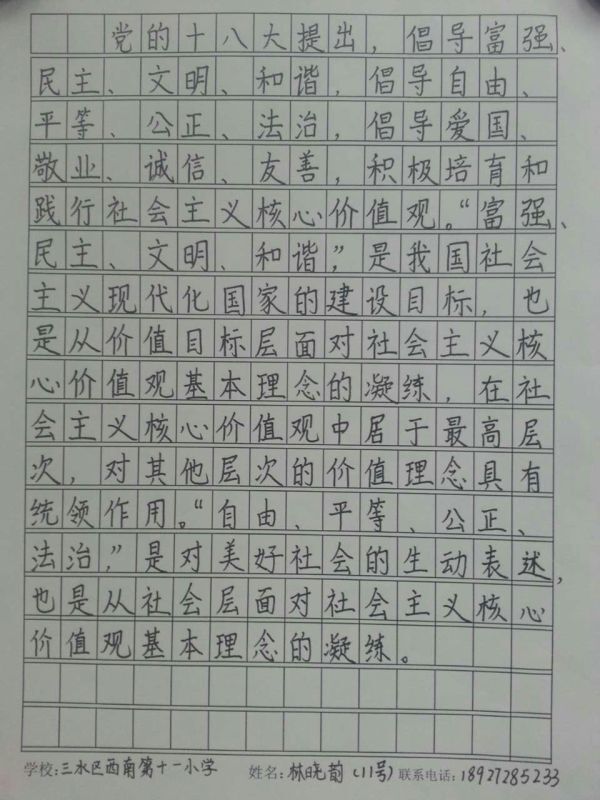 党的十八大提出，倡导富强、
民主、文明、和谐，倡导自由、
平等、公正、法治，倡导爱国、
敬业、诚信、友善，积极培育和
践行社会主义核心价值观。“富强、
民主、文明、和谐”，是我国社会
主义现代化国家的建设目标，也
是从价值目标层面对社会主义核
心价值观基本理念的凝练，在社
会主义核心价值观中居于最高层
次，对其他层次的价值理念具有
统领作用。“自由、平等、公正、
法治，”是对美好社会的生动表述，
也是从社会层面对社会主义核心
价值观基本理念的凝练。
学校：三水区西南第十一小学 姓名：林晓韵（11号）联系电话：18927285233